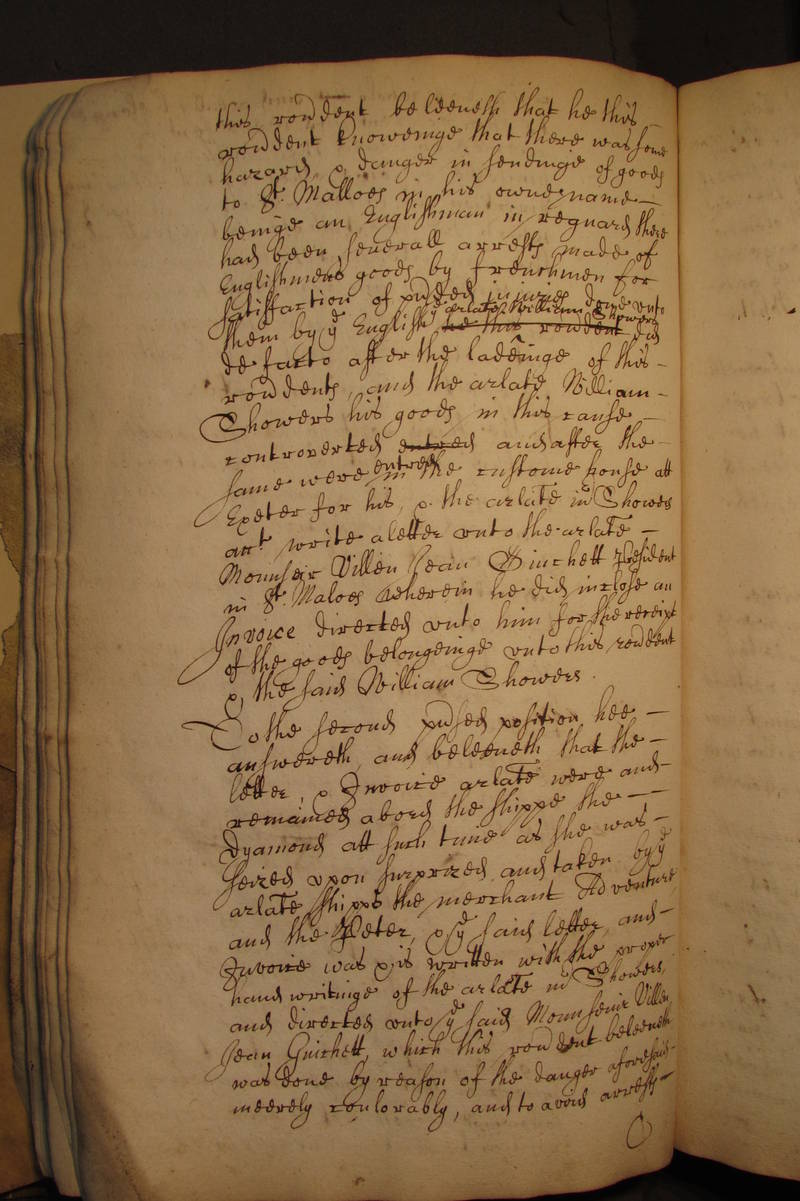 this rondent beleeveth that he this
rondent knoweinge that there was some
hazard & danger in sendinge of goods
to St. Malloes in his owne name
beinge an Englishman in reguard there
had been severall arrests made of
Englishmens goods by frenchmen for
satisfaction of prtded injuries done unto
them by ye English ye arlate William Showers
he this rondent did
de facto after the ladeinge of this
rondents, and the arlate William
Showers his goods in this cause
controverted entred and after the
same were entred in the custome house att
Exeter for his, & the arlate Showers
acct write a letter unto the arlate
Mounseir Villen Jean Guichett resident
in St. Maloes wherein he did inclose an
Invoice directed unto him for the receipt
of the goods belongeinge unto this rondent
& the said William Showers.
To the second position hee
answereth, and beleeveth that the
letter, & Invoice arlate were and
remained abord the shippe the
Dyamond att such time as she was
seized upon surprized and taken by ye
arlate shipps the merchant Adventure
and the Peter, & ye said letter, and
Invoice was & is written with the proper
hand writinge of the arlate Showers,
and directed unto ye said Mounseir Villen
Jean Guichett, which this rondent beleeveth
was done by reason of the danger aforesaid
meerely coulorably, and to avoid arrests